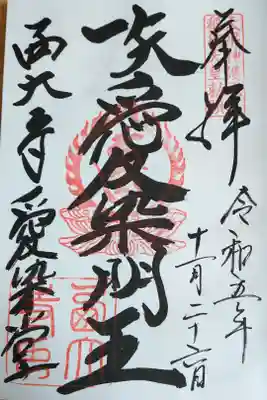 奉拝
令和五年
十一月二十六日
愛染明王
西大寺愛染堂